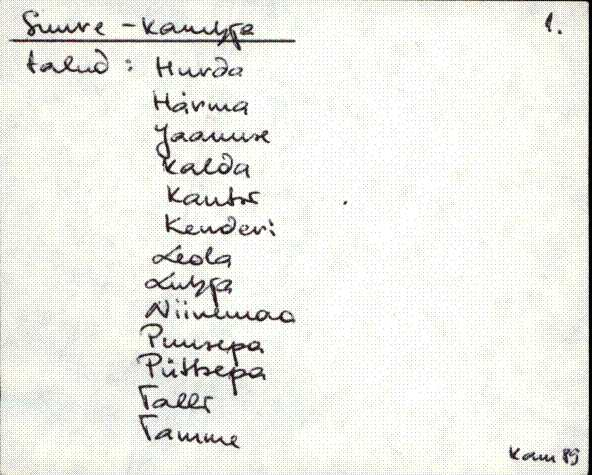 Suure-Kambja 1.
talud: Hurda
Härma
Jaamuse
Kalda
Kantsi
Kenderi
Leola
Lubja
Niinemaa
Puusepa
Püttsepa
Talli
Tamme
Kam 89